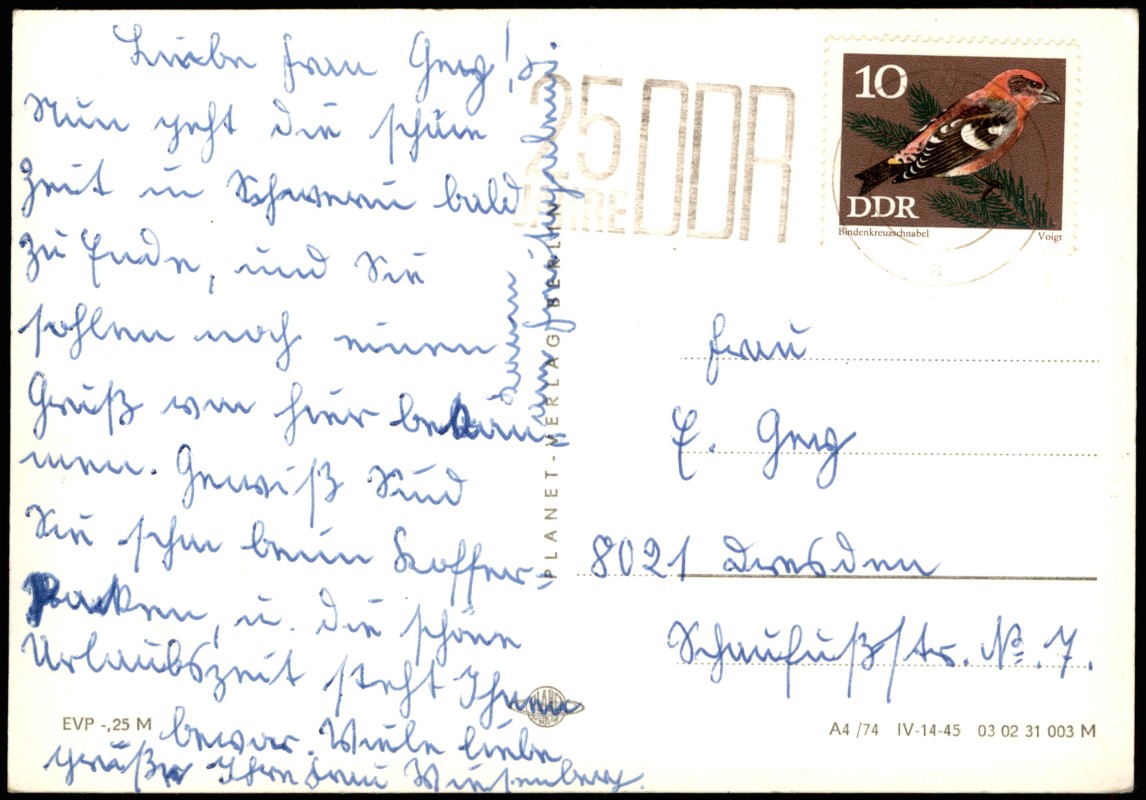 Liebe Frau Georg!
Nun geht die schöne
Zeit in Schwerin bald
zu Ende, und Sie
sohlen noch einen
Gruß von hier bekom
men. Gewiß Sind
Sie schon beim Koffer-
Packen, u. die schöne
Urlaubszeit steht Ihnen
bevor. Viele liebe
Grüße Ihre Frau
EVP -,25 M
PLANET-VERLAG BERLIN
25
JAHRE DDR
10
DDR
Bindenkreuzschnabel Voigt
Frau
E. Georg
8021 Dresden
Schaufußstr. No. 7.
A4/74 IV-14-45 03 02 31 003 M